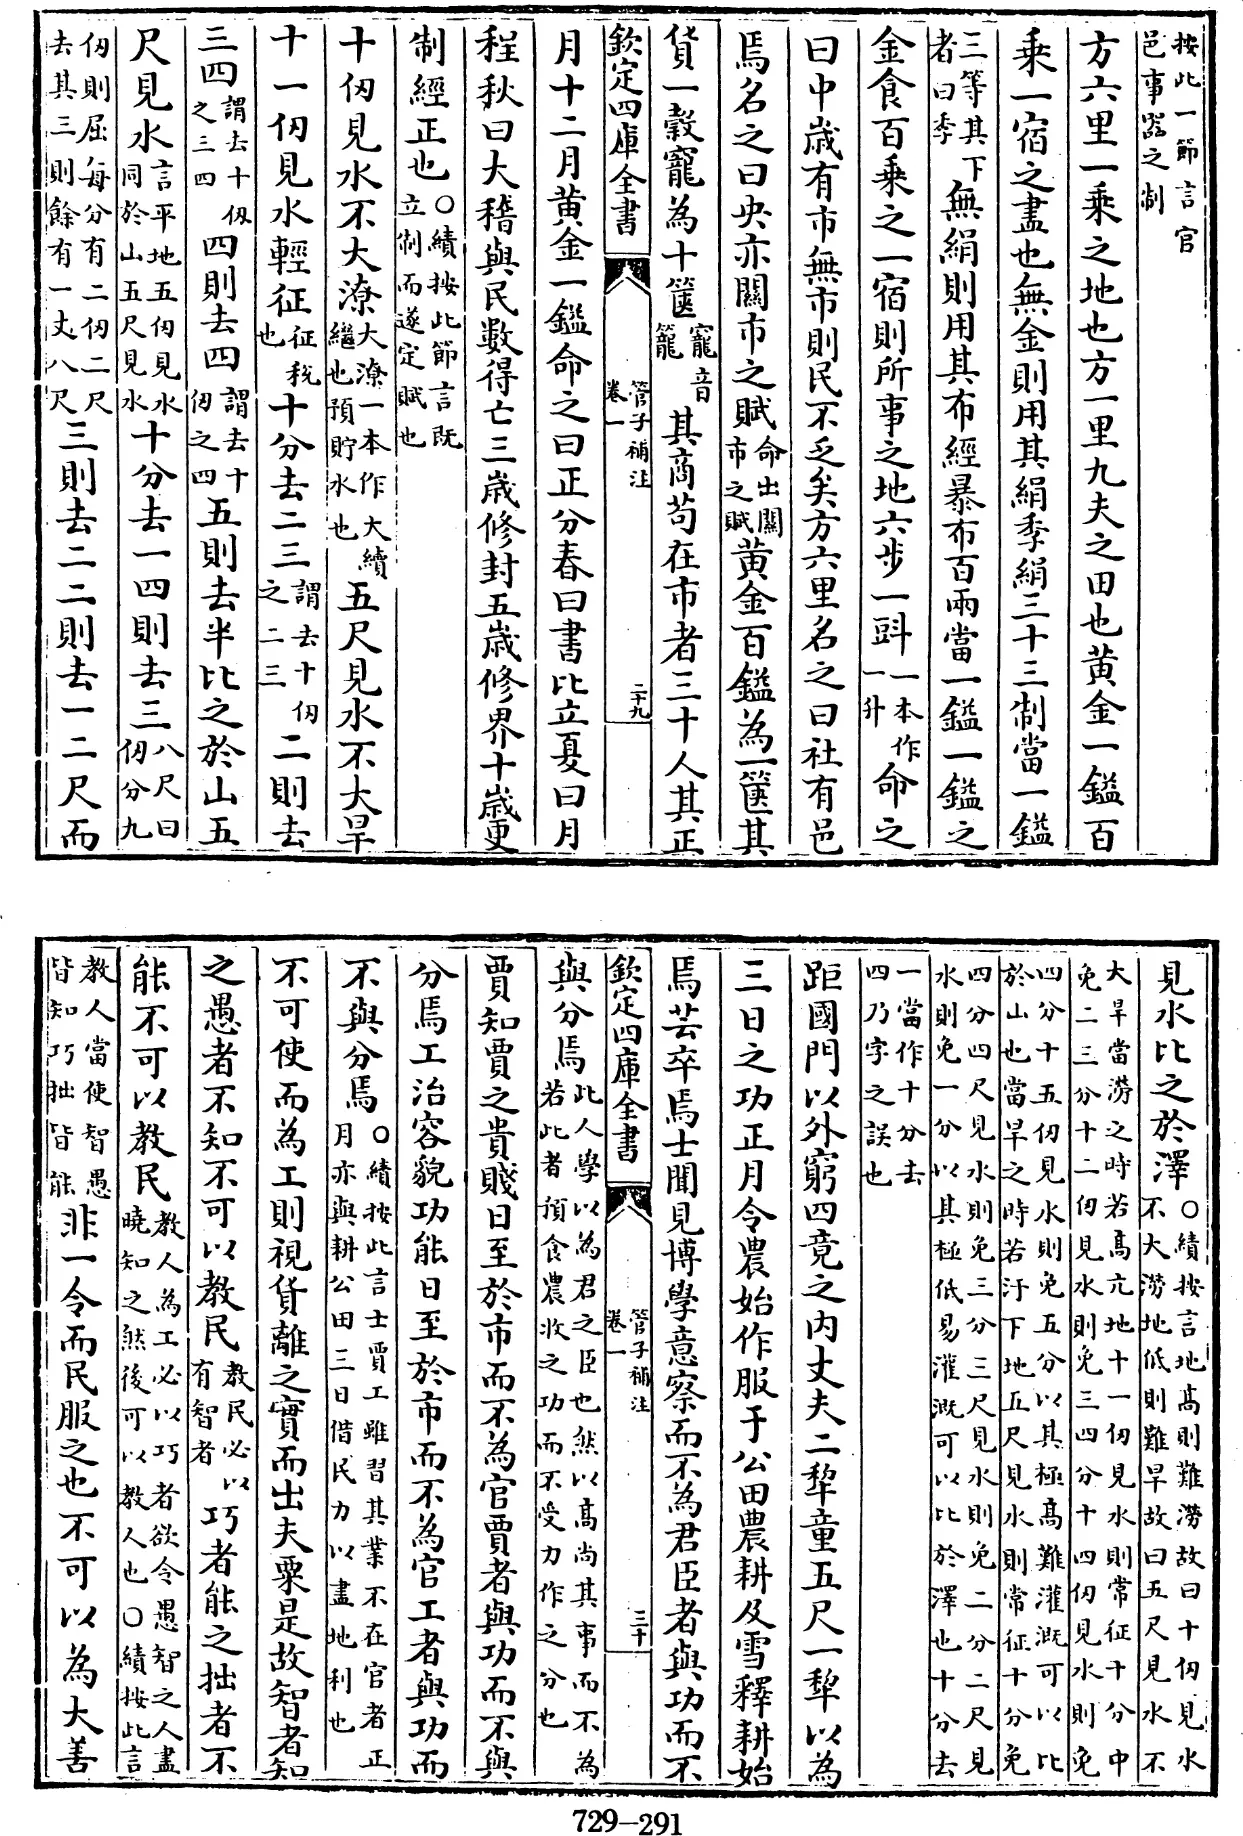 按此一節言官
邑事器之制
方六里一乘之地也方一里九夫之田也黄金一鎰百
乘一宿之盡也無金則用其絹季絹三十三制當一鎰
三等其下
者曰季
無絹則用其布經暴布百兩當一鎰一鎰之
金食百乘之一宿則所事之地六步一㪷
一本作
一升
命之
曰中歲有市無市則民不乏矣方六里名之曰社有邑
焉名之曰央亦關市之賦
命出關
市之賦
黄金百鎰為一篋其
貨一榖寵為十篋
寵音
籠
其商苟在市者三十人其正
欽定四庫全書
管子補注
卷一
二十九
月十二月黄金一鎰命之曰正分春曰書比立夏曰月
程秋曰大稽與民數得亡三歲修封五歲修界十歲更
制經正也
○績按此節言既
立制而遂定賦也
十仭見水不大潦
大潦一本作大續
繼也預貯水也
五尺見水不大旱
十一仭見水輕征
征税
也
十分去二三
謂去十仭
之二三
二則去
三四
謂去十仭
之三四
四則去四
謂去十
仭之四
五則去半比之於山五
尺見水
言平地五仭見水
同於山五尺見水
十分去一四則去三
八尺曰
仭分九
仭則屈每分有二仭二尺
去其三則餘有一丈八尺
三則去二二則去一二尺而
見水比之於澤
○績按言地髙則難澇故曰十仭見水
不大澇地低則難旱故曰五尺見水不
大旱當澇之時若髙亢地十一仭見水則常征十分中
免二三分十二仭見水則免三四分十四仭見水則免
四分十五仭見水則免五分以其極髙難灌溉可以比
於山也當旱之時若汙下地五尺見水則常征十分免
四分四尺見水則免三分三尺見水則免二分二尺見
水則免一分以其極低易灌溉可以比於澤也十分去
一當作十分去
四乃字之誤也
距國門以外窮四竟之内丈夫二犂童五尺一犂以為
三日之功正月令農始作服于公田農耕及雪釋耕始
焉芸卒焉士聞見博學意察而不為君臣者與功而不
欽定四庫全書
管子補注
卷一
三十
與分焉
此人學以為君之臣也然以髙尚其事而不為
若此者預食農收之功而不受力作之分也
賈知賈之貴賤日至於市而不為官賈者與功而不與
分焉工治容貌功能日至於市而不為官工者與功而
不與分焉
○績按此言士賈工雖習其業不在官者正
月亦與耕公田三日借民力以盡地利也
不可使而為工則視貨離之實而出夫粟是故智者知
之愚者不知不可以教民
教民必以
有智者
巧者能之拙者不
能不可以教民
教人為工必以巧者欲令愚智之人盡
曉知之然後可以教人也○績按此言
教人當使智愚
皆知巧拙皆能
非一令而民服之也不可以為大善
729-291